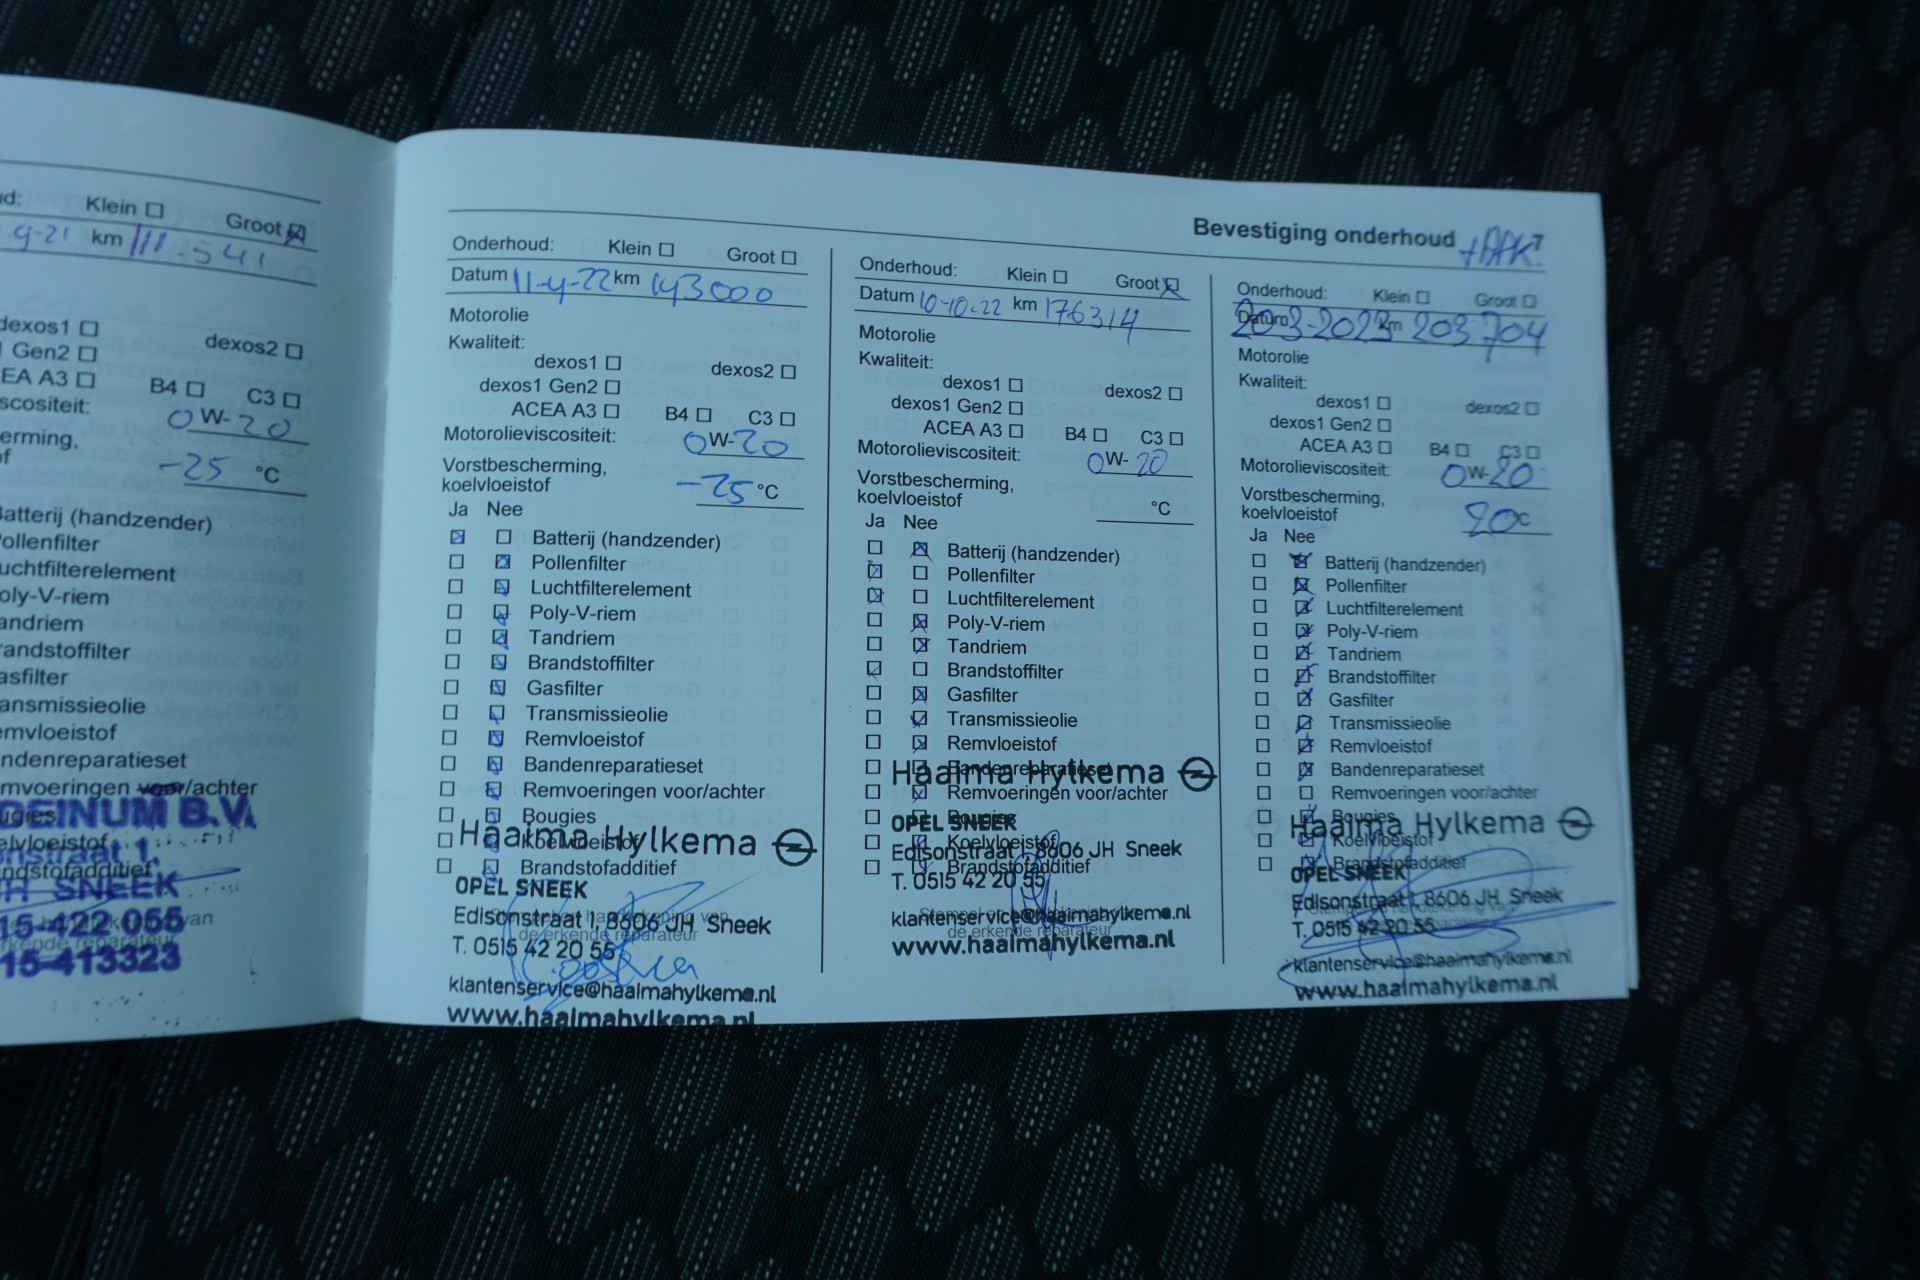 d: Klein Groot
9-21 km 111.541
dexos1 dexos2
Gen2
EA A3 B4 C3
scositeit: 0W-20
erming,
f -25 °C
Batterij (handzender)
ollenfilter
uchtfilterelement
oly-V-riem
andriem
randstoffilter
asfilter
ansmissieolie
emvloeistof
ndenreparatieset
mvoeringen voor/achter
DEINUM B.V.
ugies
elvloeistof
nstraat 1,
ndstofadditief
H SNEEK
15-422 055
rkende reparateur
15-413323
Bevestiging onderhoud 7
+APK.
Onderhoud: Klein Groot
Datum 11-4-22 km 143000
Motorolie
Kwaliteit:
dexos1 dexos2
dexos1 Gen2
ACEA A3 B4 C3
Motorolieviscositeit: 0W-20
Vorstbescherming,
koelvloeistof -25 °C
Ja Nee
Batterij (handzender)
Pollenfilter
Luchtfilterelement
Poly-V-riem
Tandriem
Brandstoffilter
Gasfilter
Transmissieolie
Remvloeistof
Bandenreparatieset
Remvoeringen voor/achter
Bougies
Haaima Hylkema
Koelvloeistof
Brandstofadditief
OPEL SNEEK
Edisonstraat 1, 8606 JH Sneek
de erkende reparateur
T. 0515 42 20 55
klantenservice@haaimahylkema.nl
www.haaimahylkema.nl
Onderhoud: Klein Groot
Datum 10-10-22 km 176314
Motorolie
Kwaliteit:
dexos1 dexos2
dexos1 Gen2
ACEA A3 B4 C3
Motorolieviscositeit: 0W-20
Vorstbescherming,
koelvloeistof °C
Ja Nee
Batterij (handzender)
Pollenfilter
Luchtfilterelement
Poly-V-riem
Tandriem
Brandstoffilter
Gasfilter
Transmissieolie
Remvloeistof
Bandenreparatieset
Haaima Hylkema
Remvoeringen voor/achter
Bougies
OPEL SNEEK
Koelvloeistof
Edisonstraat 1, 8606 JH Sneek
Brandstofadditief
T. 0515 42 20 55
klantenservice@haaimahylkema.nl
de erkende reparateur
www.haaimahylkema.nl
Onderhoud: Klein Groot
Datum 20-3-2023 km 203704
Motorolie
Kwaliteit:
dexos1 dexos2
dexos1 Gen2
ACEA A3 B4 C3
Motorolieviscositeit: 0W-20
Vorstbescherming,
koelvloeistof 20 °C
Ja Nee
Batterij (handzender)
Pollenfilter
Luchtfilterelement
Poly-V-riem
Tandriem
Brandstoffilter
Gasfilter
Transmissieolie
Remvloeistof
Bandenreparatieset
Remvoeringen voor/achter
Bougies
Haaima Hylkema
Koelvloeistof
Brandstofadditief
OPEL SNEEK
Edisonstraat 1, 8606 JH Sneek
T. 0515 42 20 55
klantenservice@haaimahylkema.nl
www.haaimahylkema.nl